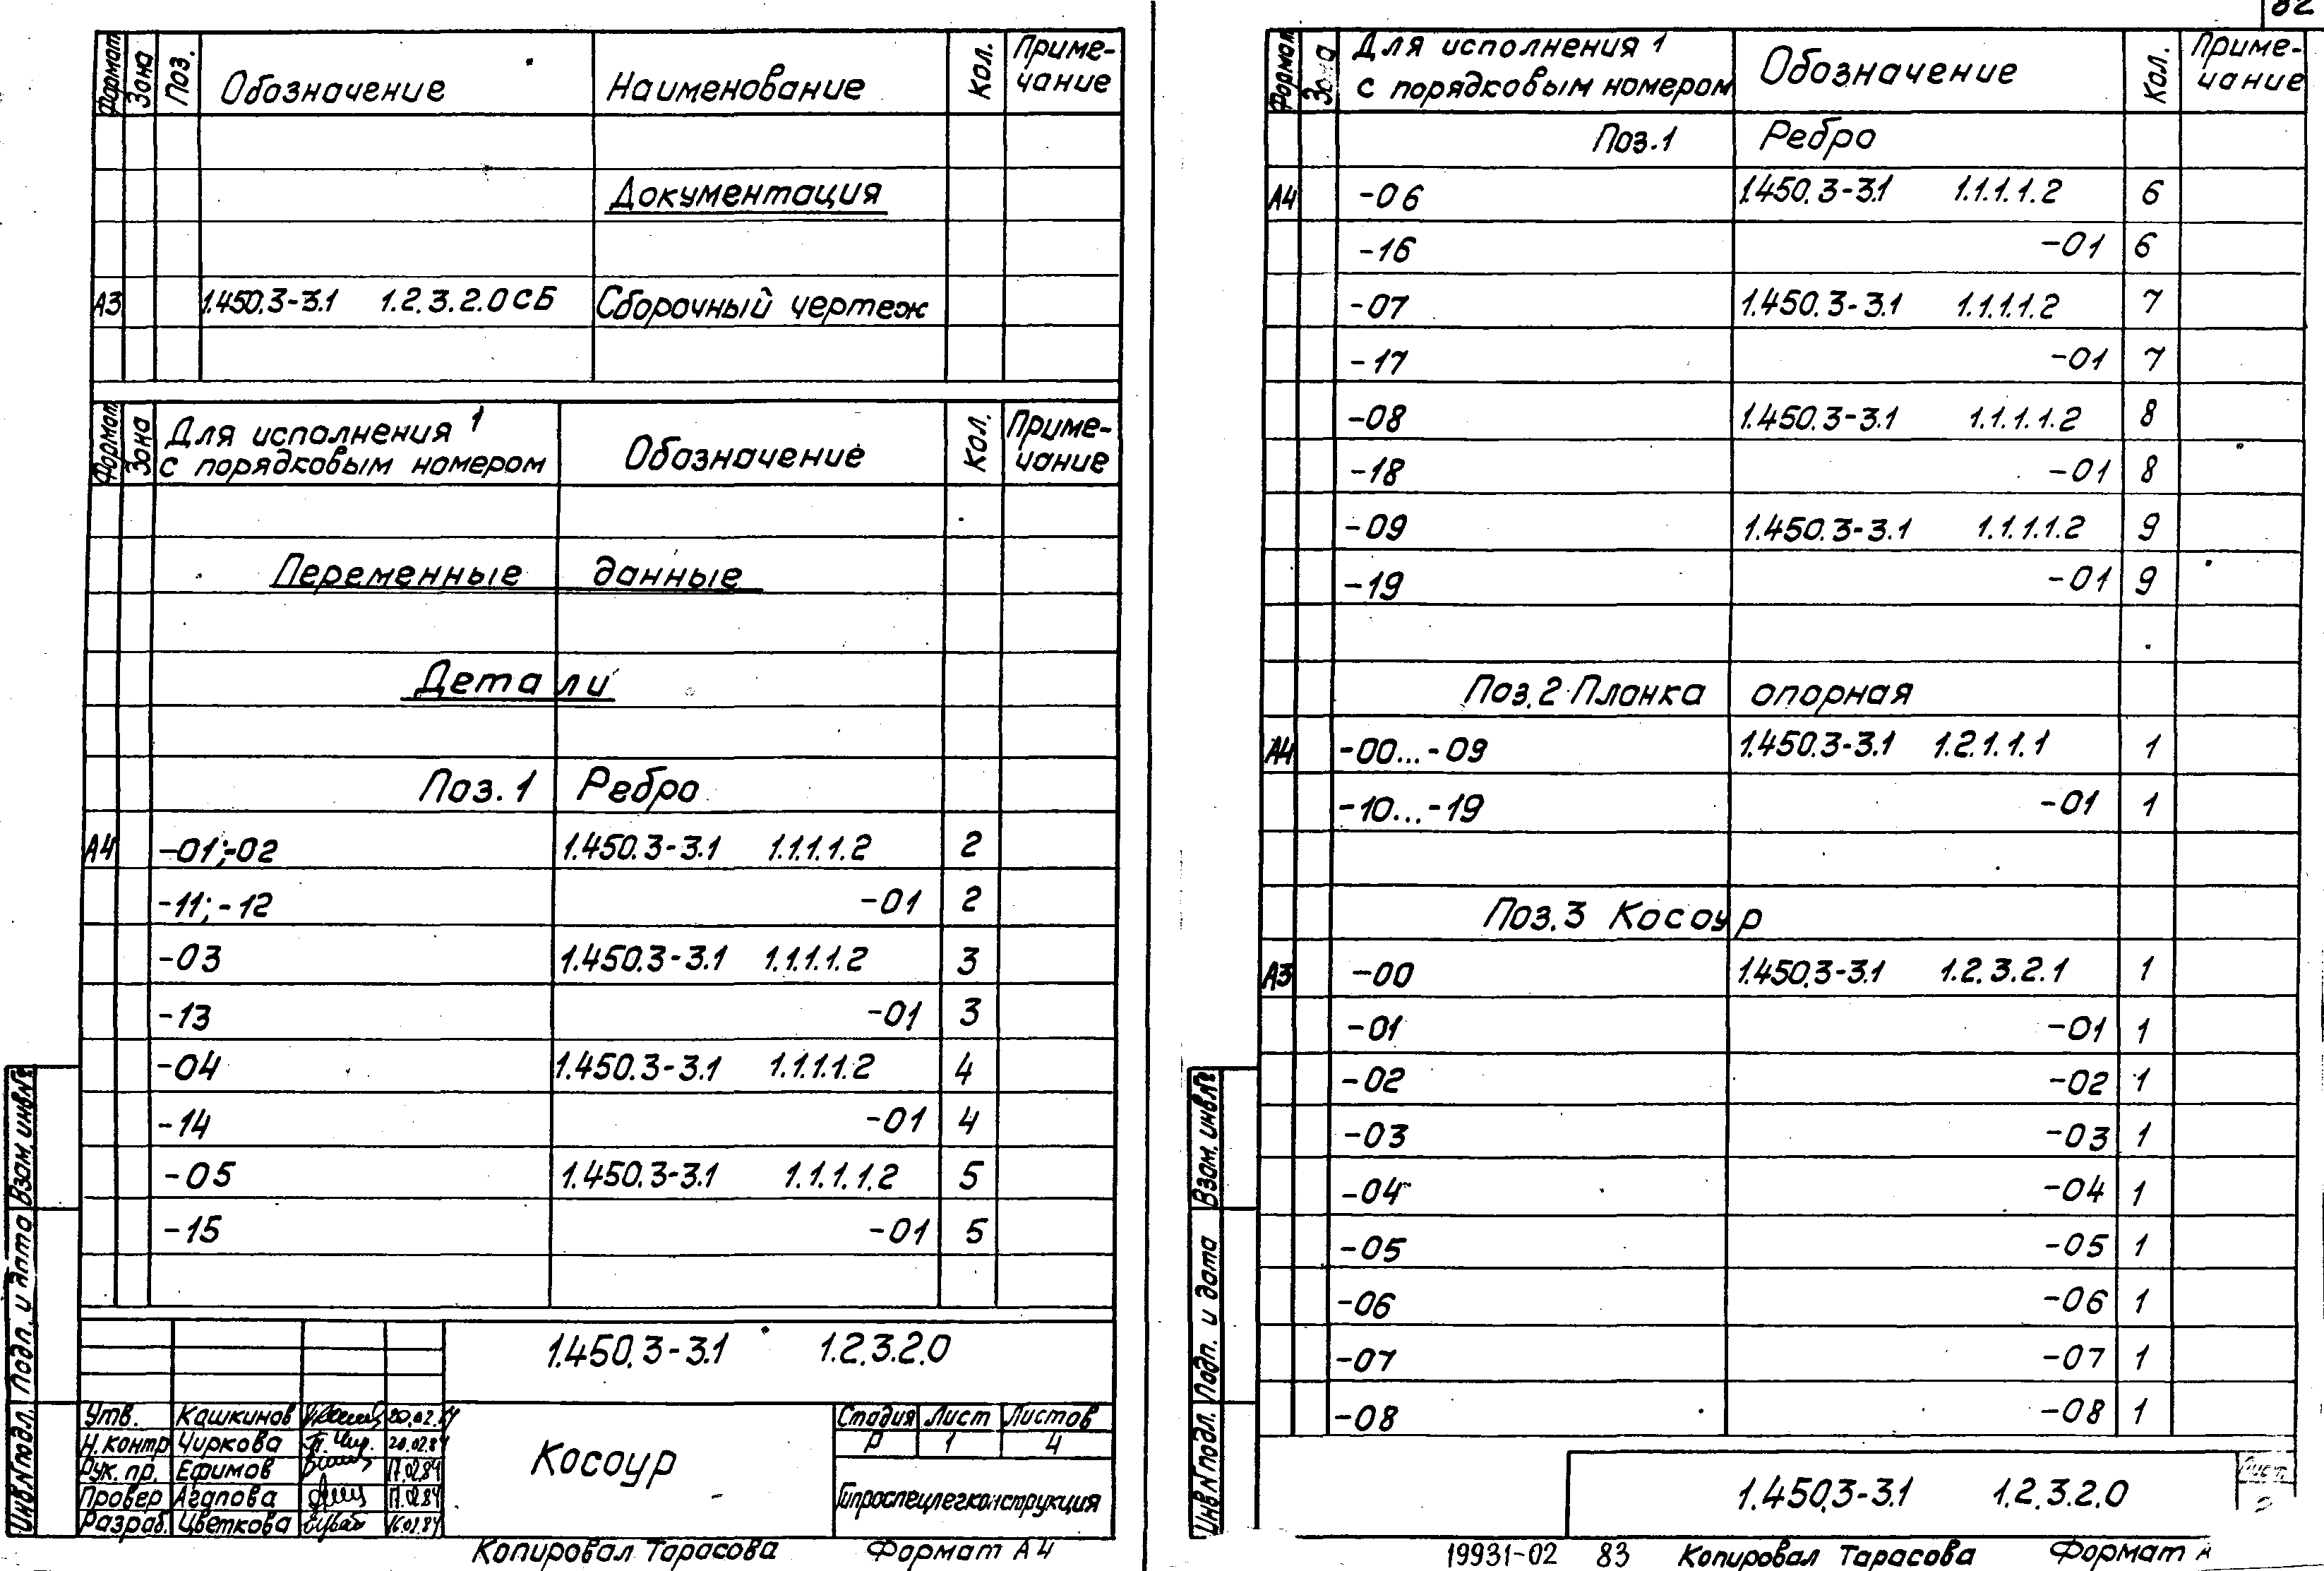 Формат Зона Поз. Обозначение Наименование Кол. Приме-
чание
Документация
А3 1.450.3-3.1 1.2.3.2.0 СБ Сборочный чертеж
Формат Зона Для исполнения 1
с порядковым номером Обозначение Кол. Приме-
чание
Переменные данные
Детали
Поз.1 Ребро
А4 -01;-02 1.450.3-3.1 1.1.1.1.2 2
-11;-12 -01 2
-03 1.450.3-3.1 1.1.1.1.2 3
-13 -01 3
-04 1.450.3-3.1 1.1.1.1.2 4
-14 -01 4
-05 1.450.3-3.1 1.1.1.1.2 5
-15 -01 5
Взам. инв.№
Подп. и дата
Инв.№ подл.
1.450.3-3.1 1.2.3.2.0
Утв. Кашкинов 20.02.84
Н.контр Чиркова 20.02.84
Рук.пр. Ефимов 17.02.84
Провер Агапова 17.02.84
Разраб. Цветкова 16.02.84
Косоур
Стадия Лист Листов
Р 1 4
Гипроспецлегконструкция
Копировал Тарасова Формат А4
82
Формат Зона Для исполнения 1
с порядковым номером Обозначение Кол. Приме-
чание
Поз.1 Ребро
А4 -06 1.450.3-3.1 1.1.1.1.2 6
-16 -01 6
-07 1.450.3-3.1 1.1.1.1.2 7
-17 -01 7
-08 1.450.3-3.1 1.1.1.1.2 8
-18 -01 8
-09 1.450.3-3.1 1.1.1.1.2 9
-19 -01 9
Поз.2 Планка опорная
А4 -00...-09 1.450.3-3.1 1.2.1.1.1 1
-10...-19 -01 1
Поз.3 Косоур
А3 -00 1.450.3-3.1 1.2.3.2.1 1
-01 -01 1
-02 -02 1
-03 -03 1
-04 -04 1
-05 -05 1
-06 -06 1
-07 -07 1
-08 -08 1
Взам. инв.№
Подп. и дата
Инв.№ подл.
1.450.3-3.1 1.2.3.2.0
Лист
2
19931-02 83 Копировал Тарасова Формат А